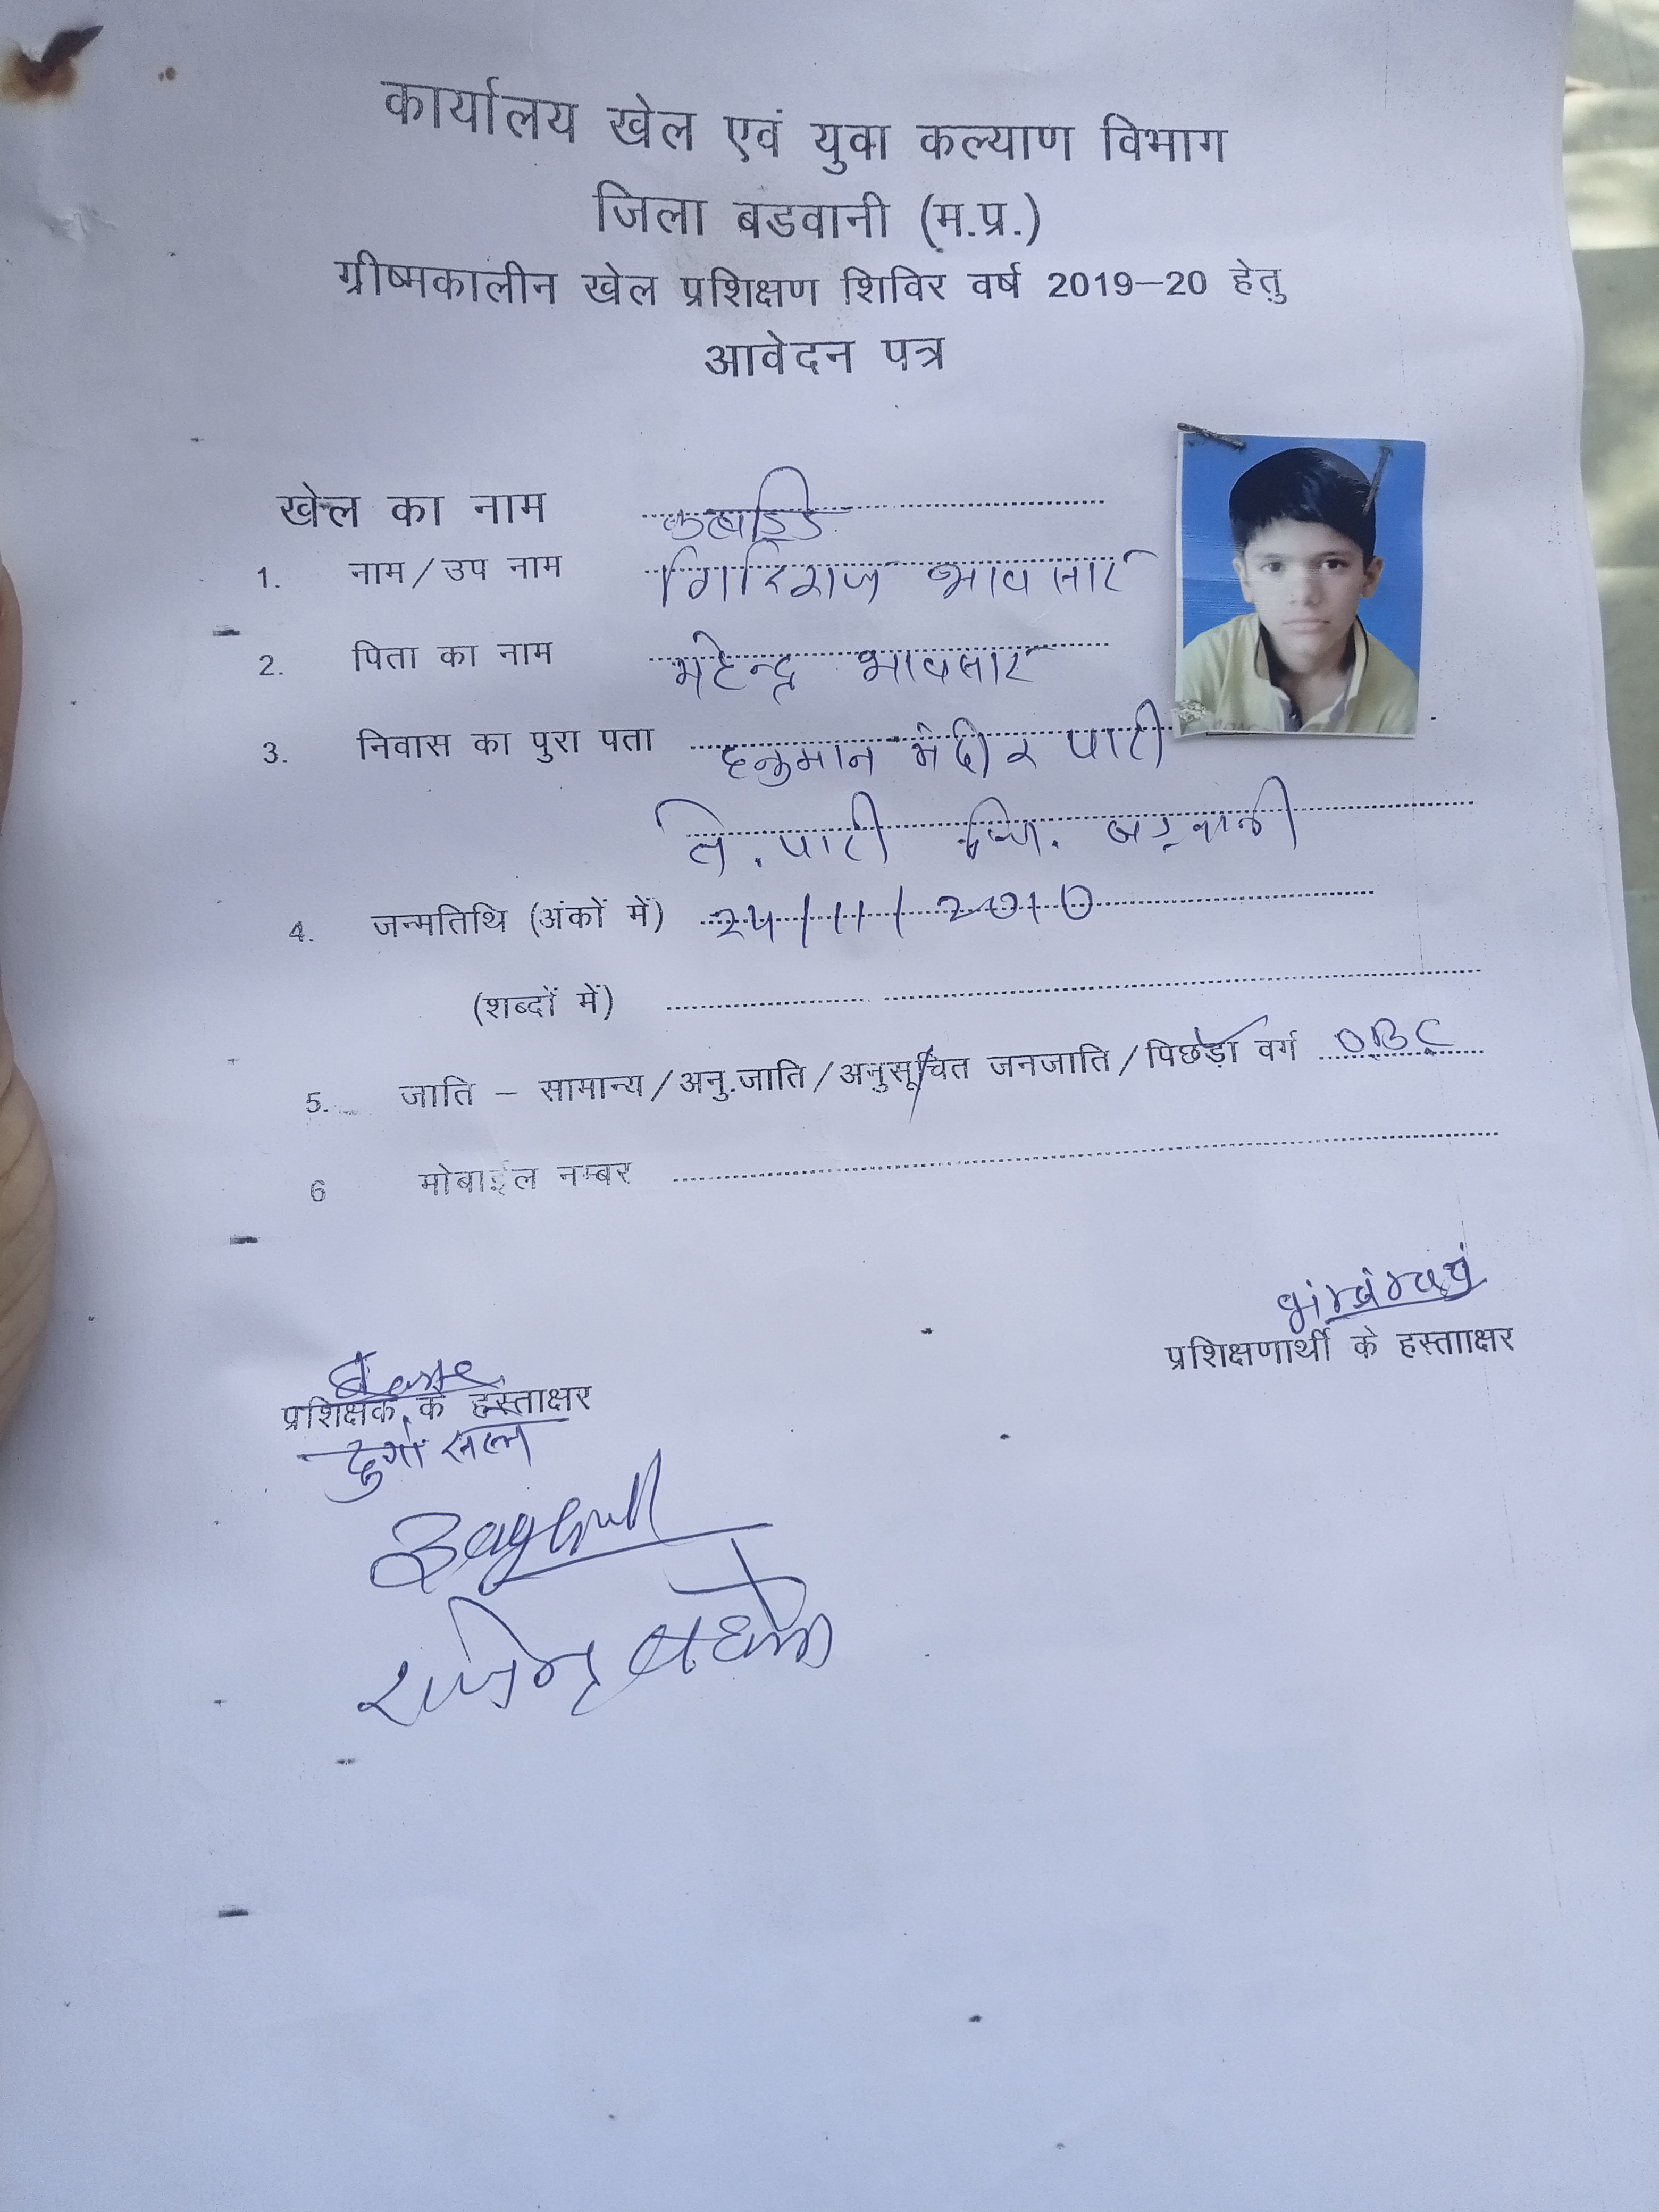 कार्यालय खेल एवं युवा कल्याण विभाग
जिला बडवानी (म.प्र.)
ग्रीष्मकालीन खेल प्रशिक्षण शिविर वर्ष 2019–20 हेतु
आवेदन पत्र
खेल का नाम
1. नाम/उप नाम गिरिराज भावसार
2. पिता का नाम महेन्द्र भावसार
3. निवास का पुरा पता हनुमान मंदीर पाटी
त. पाटी जि. बड़वानी
4. जन्मतिथि (अंकों में) 24/11/2010
(शब्दों में)
5. जाति – सामान्य/अनु.जाति/अनुसूचित जनजाति/पिछड़ा वर्ग OBC
6 मोबाईल नम्बर
giriraj
प्रशिक्षणार्थी के हस्तााक्षर
प्रशिक्षक के हस्ताक्षर
राजेन्द्र बघेल